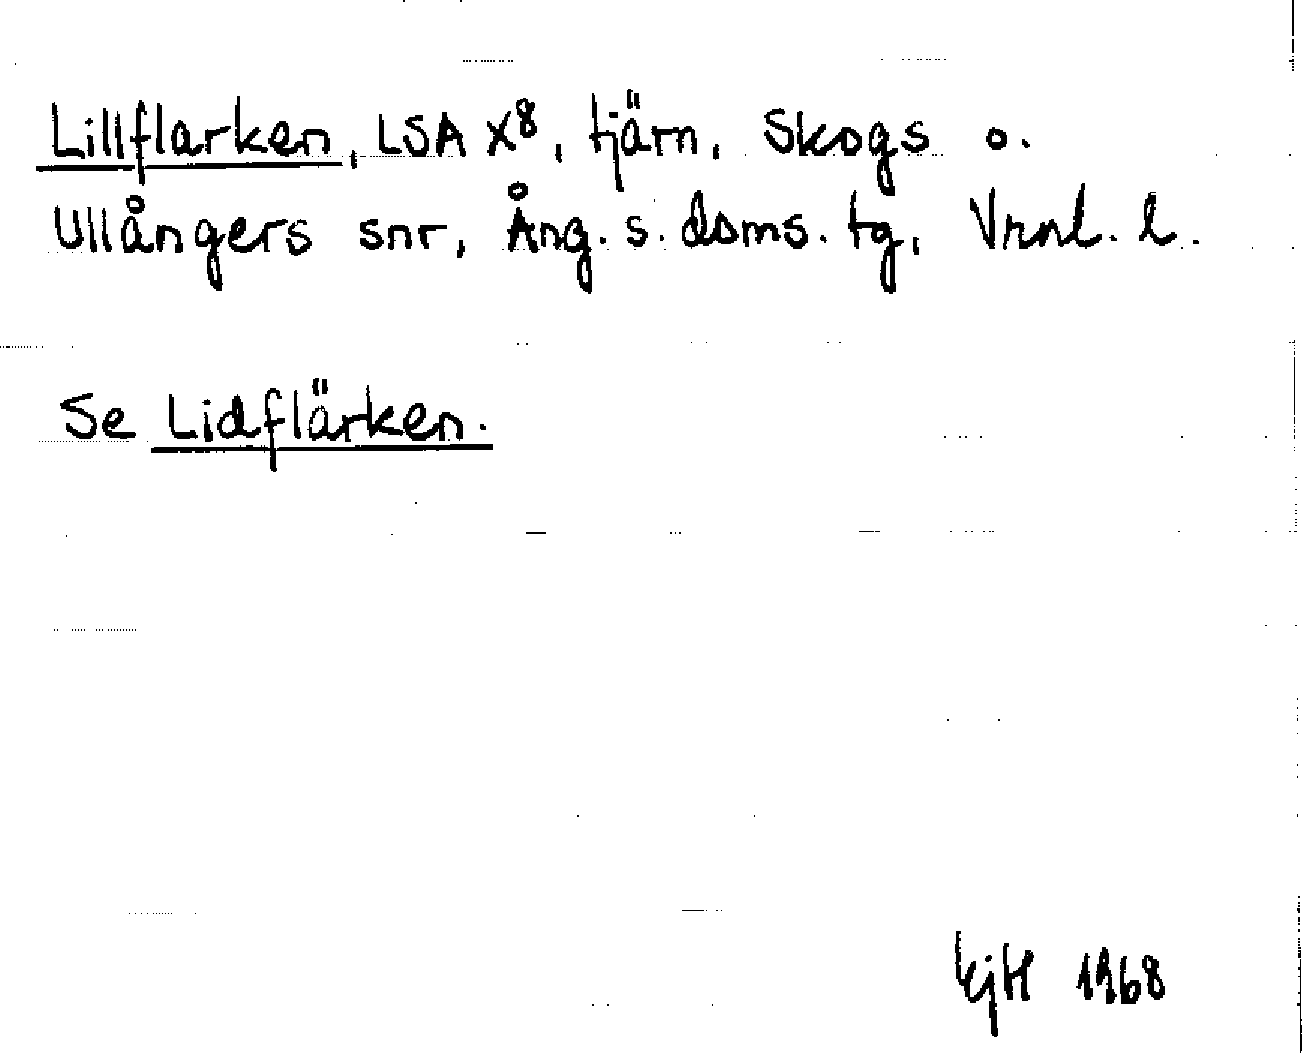 Lillflarken, LSA X8, tjärn, Skogs o.
Ullångers snr, Ång. s. doms. tg, Vrnl. l.
Se Lidflärken.
KjH 1968